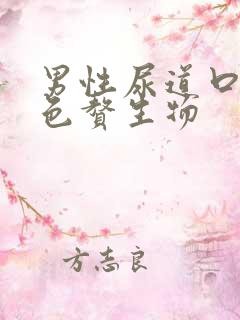 男性尿道口
色赘生物
方志良